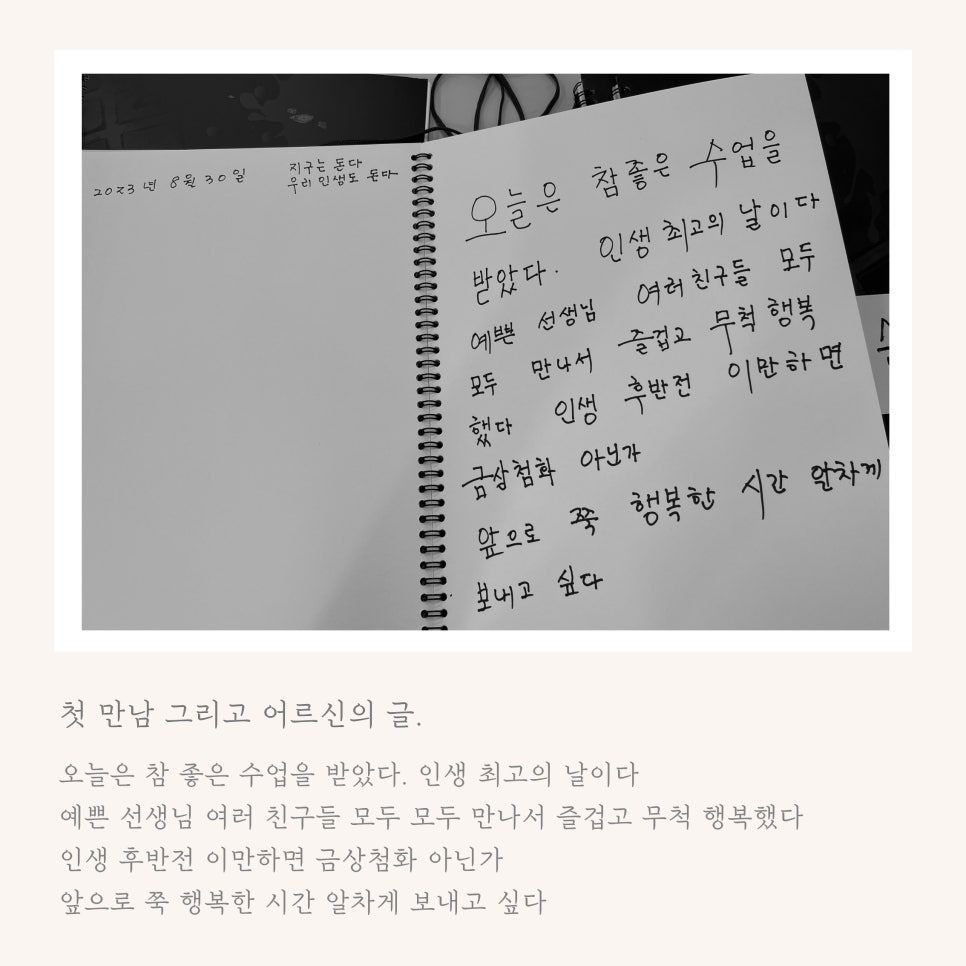 2023년 8월 30일
지구는 돈다
우리 인생도 돈다
오늘은 참좋은 수업을
받았다. 인생 최고의 날이다
예쁜 선생님 여러친구들 모두
모두 만나서 즐겁고 무척 행복
했다 인생 후반전 이만하면
금상첨화 아닌가
앞으로 쭉 행복한 시간 알차게
보내고 싶다
첫 만남 그리고 어르신의 글.
오늘은 참 좋은 수업을 받았다. 인생 최고의 날이다
예쁜 선생님 여러 친구들 모두 모두 만나서 즐겁고 무척 행복했다
인생 후반전 이만하면 금상첨화 아닌가
앞으로 쭉 행복한 시간 알차게 보내고 싶다